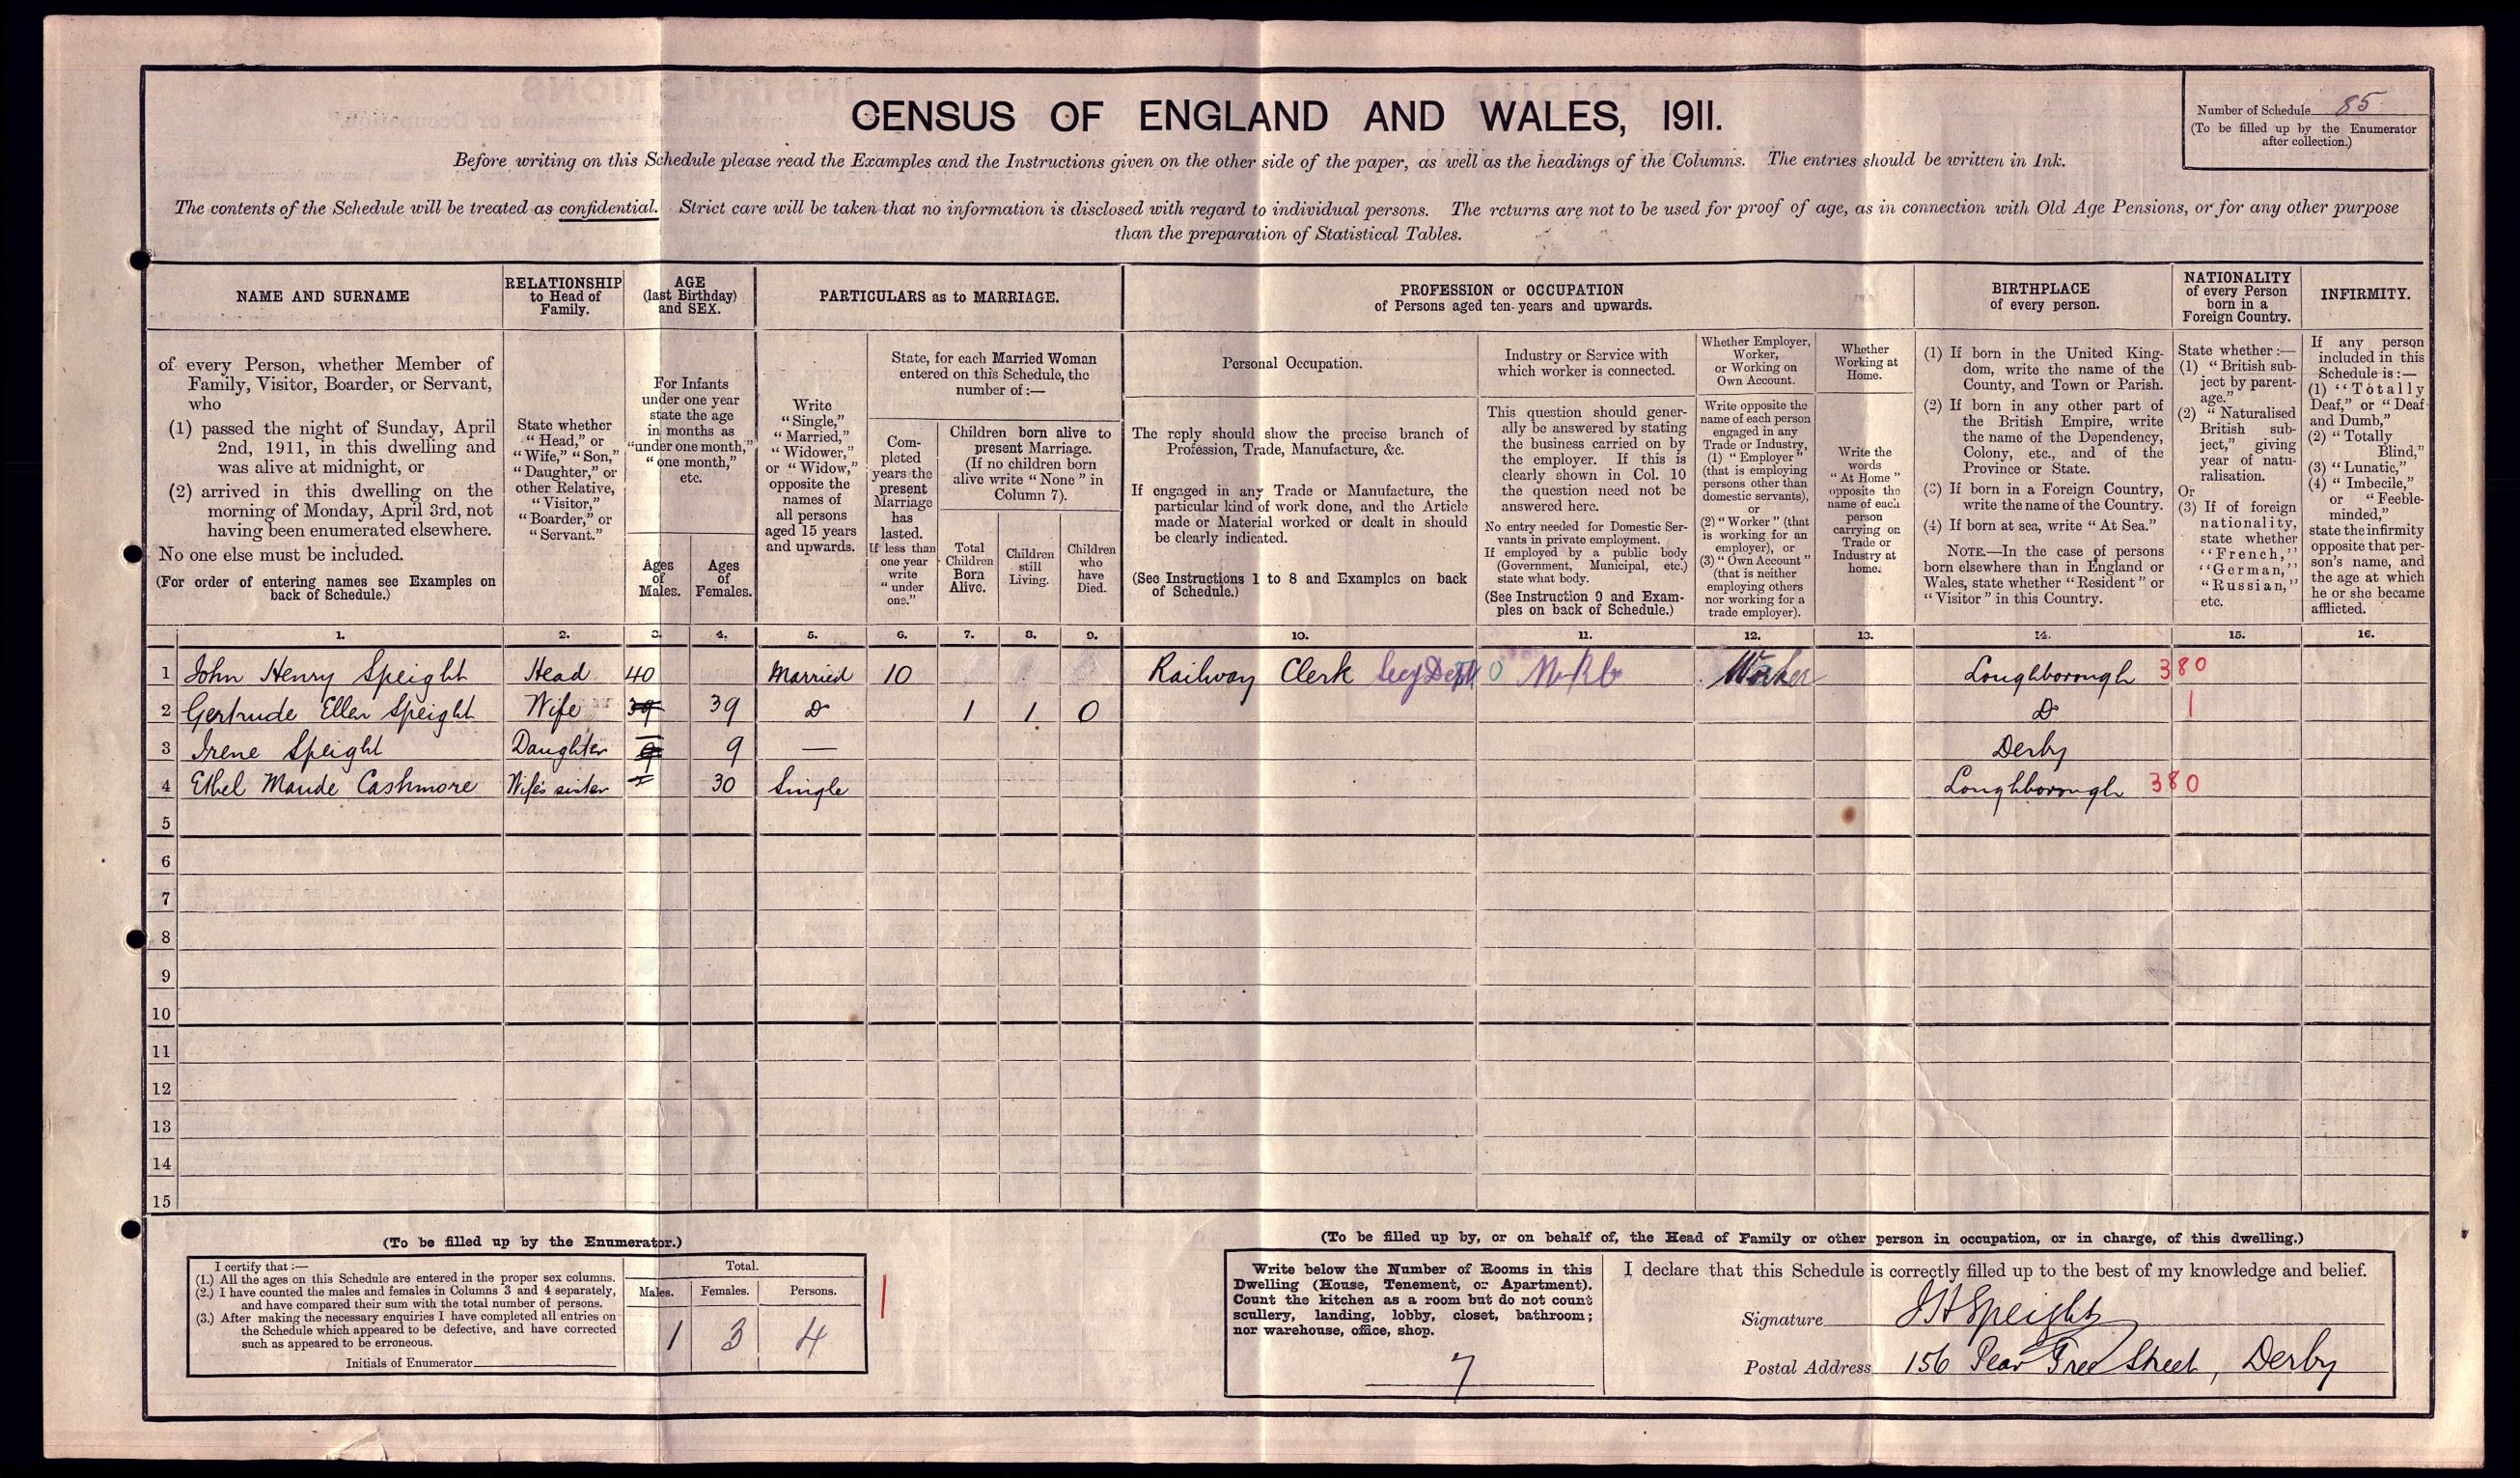 Number of Schedule 85
(To be filled up by the Enumerator
after collection.)
CENSUS OF ENGLAND AND WALES, 1911.
Before writing on this Schedule please read the Examples and the Instructions given on the other side of the paper, as well as the headings of the Columns. The entries should be written in Ink.
The contents of the Schedule will be treated as confidential. Strict care will be taken that no information is disclosed with regard to individual persons. The returns are not to be used for proof of age, as in connection with Old Age Pensions, or for any other purpose
than the preparation of Statistical Tables.
NAME AND SURNAME
of every Person, whether Member of
Family, Visitor, Boarder, or Servant,
who
(1) passed the night of Sunday, April
2nd, 1911, in this dwelling and
was alive at midnight, or
(2) arrived in this dwelling on the
morning of Monday, April 3rd, not
having been enumerated elsewhere.
No one else must be included.
(For order of entering names see Examples on
back of Schedule.)
RELATIONSHIP
to Head of
Family.
State whether
"Head," or
"Wife," "Son,"
"Daughter," or
other Relative,
"Visitor,"
"Boarder," or
"Servant."
AGE
(last Birthday)
and SEX.
For Infants
under one year
state the age
in months as
"under one month,"
"one month,"
etc.
Ages
of
Males.
Ages
of
Females.
PARTICULARS as to MARRIAGE.
Write
"Single,"
"Married,"
"Widower,"
or "Widow,"
opposite the
names of
all persons
aged 15 years
and upwards.
State, for each Married Woman
entered on this Schedule, the
number of :—
Com-
pleted
years the
present
Marriage
has
lasted.
If less than
one year
write
"under
one."
Children born alive to
present Marriage.
(If no children born
alive write "None" in
Column 7).
Total
Children
Born
Alive.
Children
still
Living.
Children
who
have
Died.
PROFESSION or OCCUPATION
of Persons aged ten years and upwards.
Personal Occupation.
The reply should show the precise branch of
Profession, Trade, Manufacture, &c.
If engaged in any Trade or Manufacture, the
particular kind of work done, and the Article
made or Material worked or dealt in should
be clearly indicated.
(See Instructions 1 to 8 and Examples on back
of Schedule.)
Industry or Service with
which worker is connected.
This question should gener-
ally be answered by stating
the business carried on by
the employer. If this is
clearly shown in Col. 10
the question need not be
answered here.
No entry needed for Domestic Ser-
vants in private employment.
If employed by a public body
(Government, Municipal, etc.)
state what body.
(See Instruction 9 and Exam-
ples on back of Schedule.)
Whether Employer,
Worker,
or Working on
Own Account.
Write opposite the
name of each person
engaged in any
Trade or Industry,
(1) "Employer"
(that is employing
persons other than
domestic servants),
or
(2) "Worker" (that
is working for an
employer), or
(3) "Own Account"
(that is neither
employing others
nor working for a
trade employer).
Whether
Working at
Home.
Write the
words
"At Home"
opposite the
name of each
person
carrying on
Trade or
Industry at
home.
BIRTHPLACE
of every person.
(1) If born in the United King-
dom, write the name of the
County, and Town or Parish.
(2) If born in any other part of
the British Empire, write
the name of the Dependency,
Colony, etc., and of the
Province or State.
(3) If born in a Foreign Country,
write the name of the Country.
(4) If born at sea, write "At Sea."
NOTE.—In the case of persons
born elsewhere than in England or
Wales, state whether "Resident" or
"Visitor" in this Country.
NATIONALITY
of every Person
born in a
Foreign Country.
State whether :—
(1) "British sub-
ject by parent-
age."
(2) "Naturalised
British sub-
ject," giving
year of natu-
ralisation.
Or
(3) If of foreign
nationality,
state whether
"French,"
"German,"
"Russian,"
etc.
INFIRMITY.
If any person
included in this
Schedule is :—
(1) "Totally
Deaf," or "Deaf
and Dumb,"
(2) "Totally
Blind,"
(3) "Lunatic,"
(4) "Imbecile,"
or "Feeble-
minded,"
state the infirmity
opposite that per-
son's name, and
the age at which
he or she became
afflicted.
1. 2. 3. 4. 5. 6. 7. 8. 9. 10. 11. 12. 13. 14. 15. 16.
1 John Henry Speight Head 40 Married 10 Railway Clerk Secy Dept 0 Worker Loughborough 380
2 Gertrude Ellen Speight Wife 39 39 Do 1 1 0 Do 1
3 Irene Speight Daughter 9 9 — Derby
4 Ethel Maude Cashmore Wife's sister 30 Single Loughborough 380
5
6
7
8
9
10
11
12
13
14
15
(To be filled up by the Enumerator.)
I certify that :—
(1.) All the ages on this Schedule are entered in the proper sex columns.
(2.) I have counted the males and females in Columns 3 and 4 separately,
and have compared their sum with the total number of persons.
(3.) After making the necessary enquiries I have completed all entries on
the Schedule which appeared to be defective, and have corrected
such as appeared to be erroneous.
Initials of Enumerator
Total.
Males. Females. Persons.
1 3 4
(To be filled up by, or on behalf of, the Head of Family or other person in occupation, or in charge, of this dwelling.)
Write below the Number of Rooms in this
Dwelling (House, Tenement, or Apartment).
Count the kitchen as a room but do not count
scullery, landing, lobby, closet, bathroom;
nor warehouse, office, shop.
7
I declare that this Schedule is correctly filled up to the best of my knowledge and belief.
Signature J H Speight
Postal Address 156 Pear Tree Street, Derby